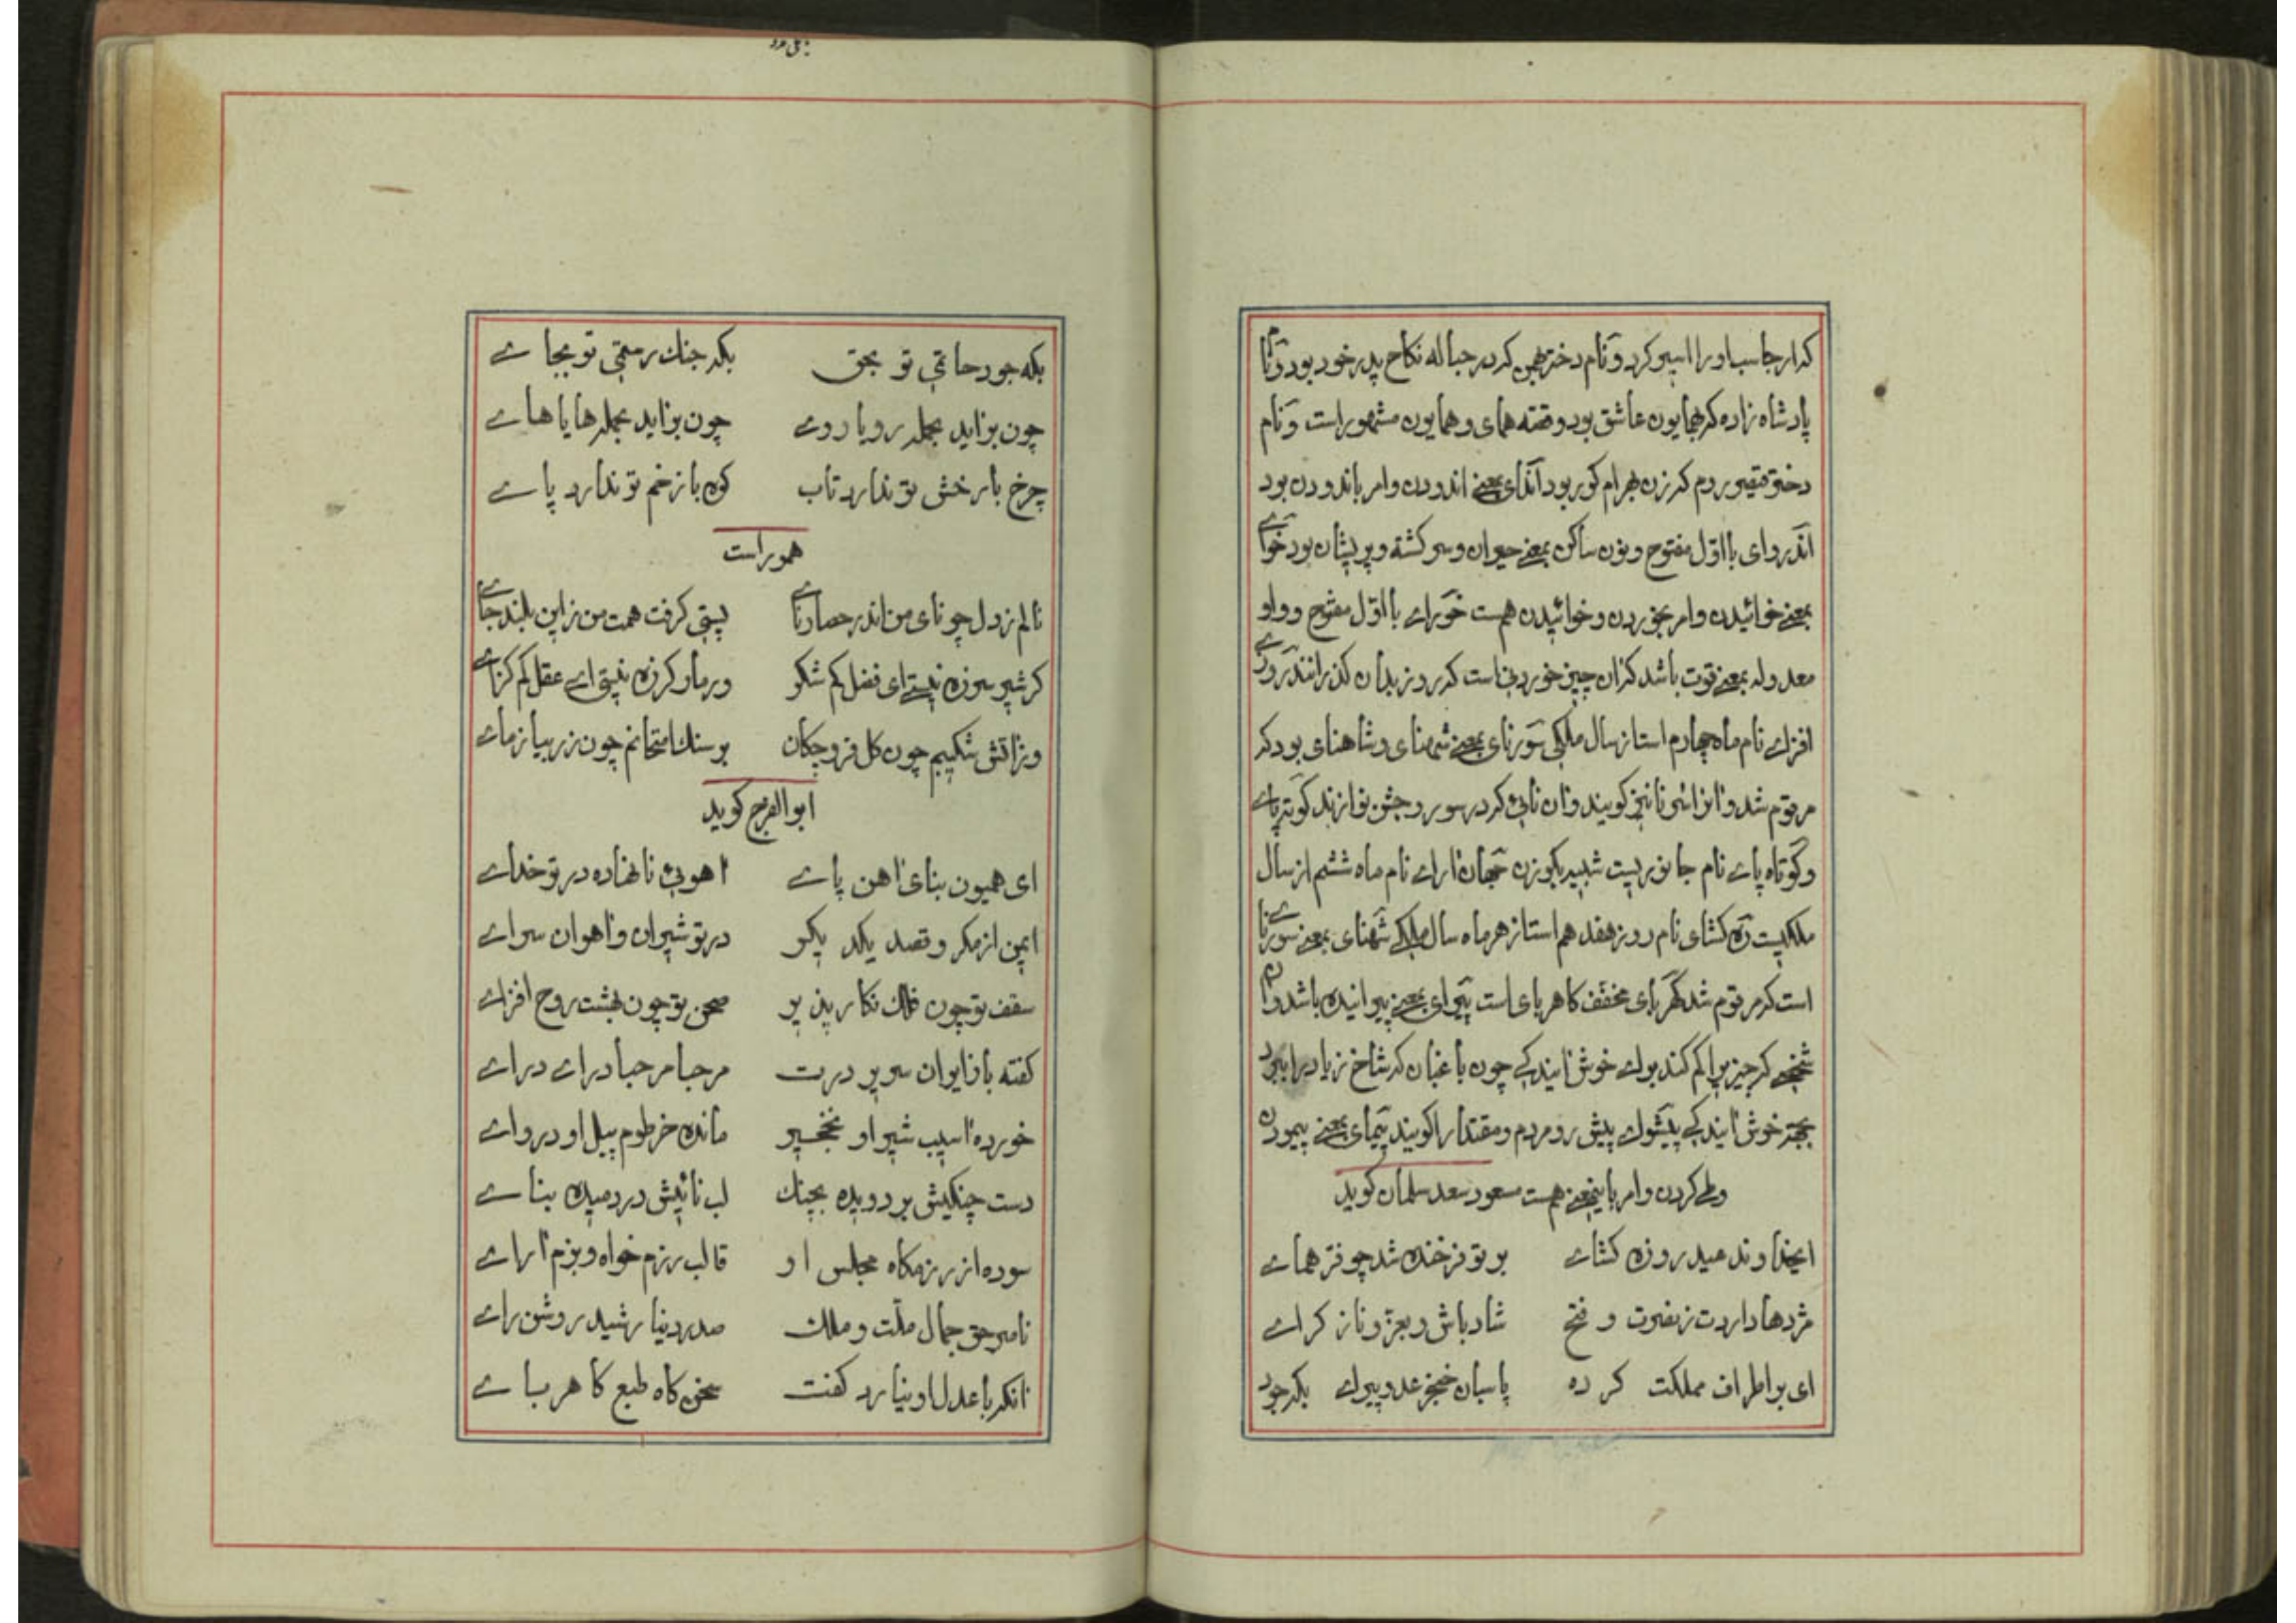 که ارجاسب او را اسیر کرد و نام دختر بهمن که در حباله نکاح پدر خود بود و نام
پادشاه زاده که بهمایون عاشق بود و قصه همای و همایون مشهور است و نام
دختر قیصر روم که زن بهرام کور بود اندای بمعنے اندودن و امر باندودن بود
اندروای با اوّل مفتوح و نون ساکن بمعنے حیران و سرکشته و پریشان بود خوائے
بمعنے خوائیدن و امر بخوردن و خوائیدن هست خورائے با اوّل مفتوح و واو
معدوله بمعنے قوت باشد کزان چیز خوردنی است که روز بدان کذرانند روزے
افزاے نام ماه چهارم است از سال ملکی سورنای بمعنے شهنای و شاهنای بود که
مرقوم شد و انرا سرنا نیز کویند و ان نائی که در سور و جشن نوازند کوترپاے
و کوتاه پاے نام جانوریست شبیه بکوزن جهان اراے نام ماه ششم از سال
ملکیست ره کشای نام روز هفدهم است از هر ماه سال ملکے شهنای بمعنے سورناے
است که مرقوم شد کهربای مخفف کاهربای است پیرای بمعنے پیرانیده باشد و ان
شخصے که چیز را کم کند براے خوش ایندکے چون باغبان که شاخ زیاد را ببرد
بجهة خوش ایندکے پیشواے پیش رو مردم و مقتدا را کویند پیمای بمعنے پیمودن
و طے کردن و امر باینمعنے هست مسعود سعد سلمان کوید
ایخداوند عید روزه کشاے بر تو فرخنده شد چو فر هماے
مژدها داردت ز نصرت و فتح شاد باش و بعز و ناز کراے
ای بر اطراف مملکت کرده پاسبان خنجر عدو پیراے بکه جود
بکه جود حاتمی تو بحق بکه جنک رستمی تو بجاے
چون برائید بحمله رویاروے چون برائید بحمله هایاهاے
چرخ با رخش تو ندارد تاب کوه با زخم تو ندارد پاے
هموراست
نالم ز دل چو نای من اندر حصار ناے پستی کرفت همت من زاین بلند جاے
کر شیر شرزه نیستے ای فضل کم شکر ور مار کرزه نیستی اے عقل کم کزاے
در اتش شکیبم چون کل فرو چکان بر سنک امتحانم چون زر بیازماے
ابوالفرج کوید
ای همیون بنای اهن پاے اهویئ نانهاده در تو خداے
ایمن از مکر و قصد یکدیکر در تو شیران و اهوان سراے
سقف تو چون فلک نکار پذیر صحن تو چون بهشت روح افزاے
کفته با زایوان سریر درت مرحبا مرحبا دراے دراے
خورده اسیب شیر او نخجیر مانده خرطوم پیل او درواے
دست چنکیش بر دویده بچنک لب نائیش در دمیده بناے
سوده از رزمکاه مجلس او قالب رزم خواه و بزم اراے
ناصر حق جمال ملّت و ملک صدر دنیا رشید روشن راے
انکه با عدل او نیارد کفت سخن کاه طبع کاهرباے